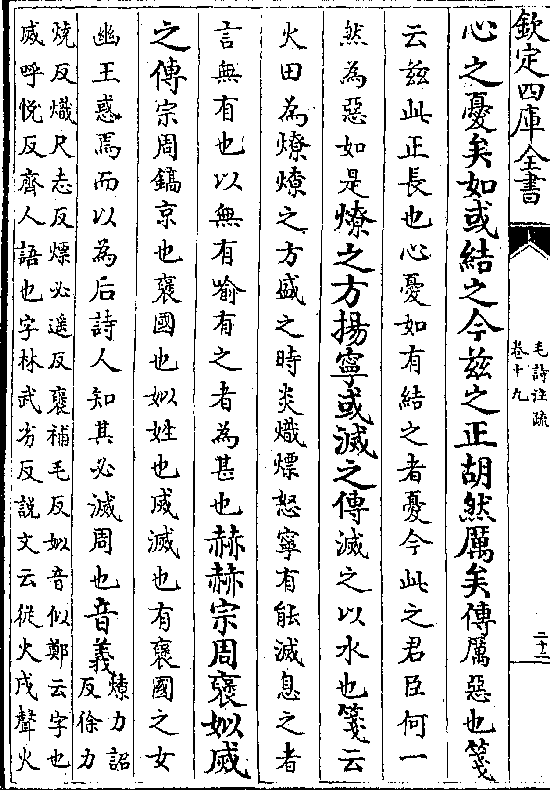 欽定四庫全書
毛詩注疏
卷十九
二十二
心之憂矣如或結之今茲之正胡然厲矣傳厲惡也箋
云茲此正長也心憂如有結之者憂今此之君臣何一
然為惡如是燎之方揚寧或滅之傳滅之以水也箋云
火田為燎燎之方盛之時炎熾熛怒寧有能滅息之者
言無有也以無有喻有之者為甚也赫赫宗周褒姒烕
之傳宗周鎬京也褒國也姒姓也烕滅也有褒國之女
幽王惑焉而以為后詩人知其必滅周也音義燎力詔
反徐力
燒反熾尺志反熛必遥反褒補毛反姒音似鄭云字也
烕呼恱反齊人語也字林武劣反說文云從火戌聲火